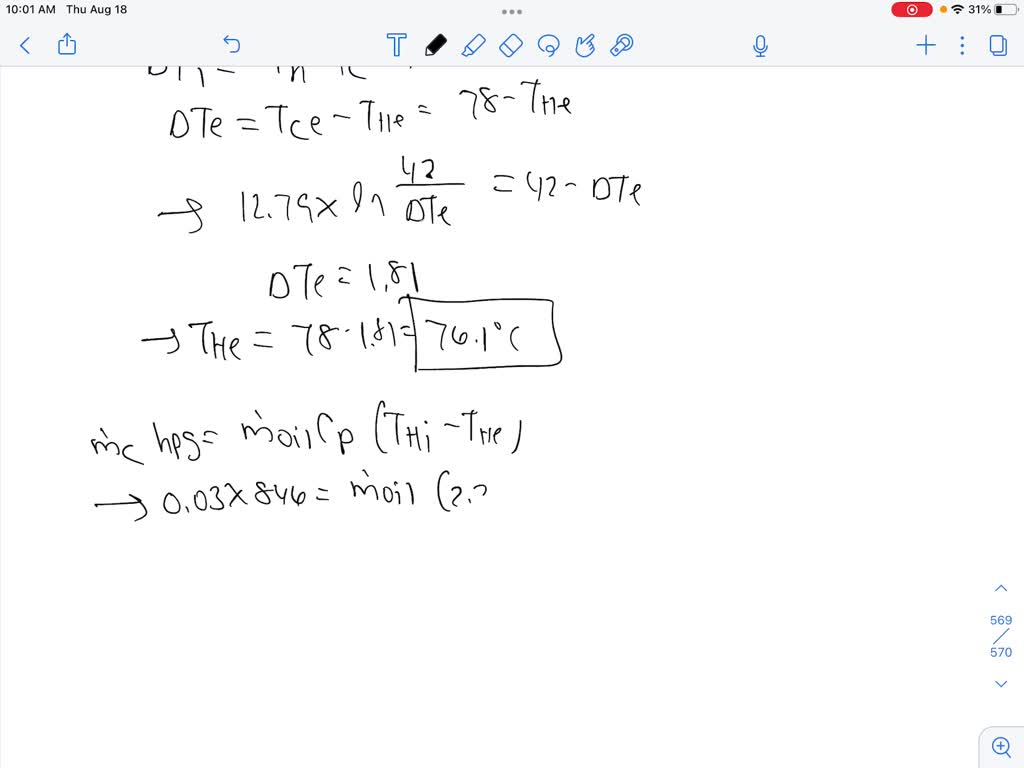 10:01 AM Thu Aug 18
31%
DTe = Tce - THe = 78 - THe
→ 12.79 x ln 42/DTe = 42 - DTe
DTe = 1.81
→ THe = 78 - 1.81 = 76.1°C
ṁc hfg = ṁoil Cp (THi - THe)
→ 0.03 x 846 = ṁoil (2.
569
570